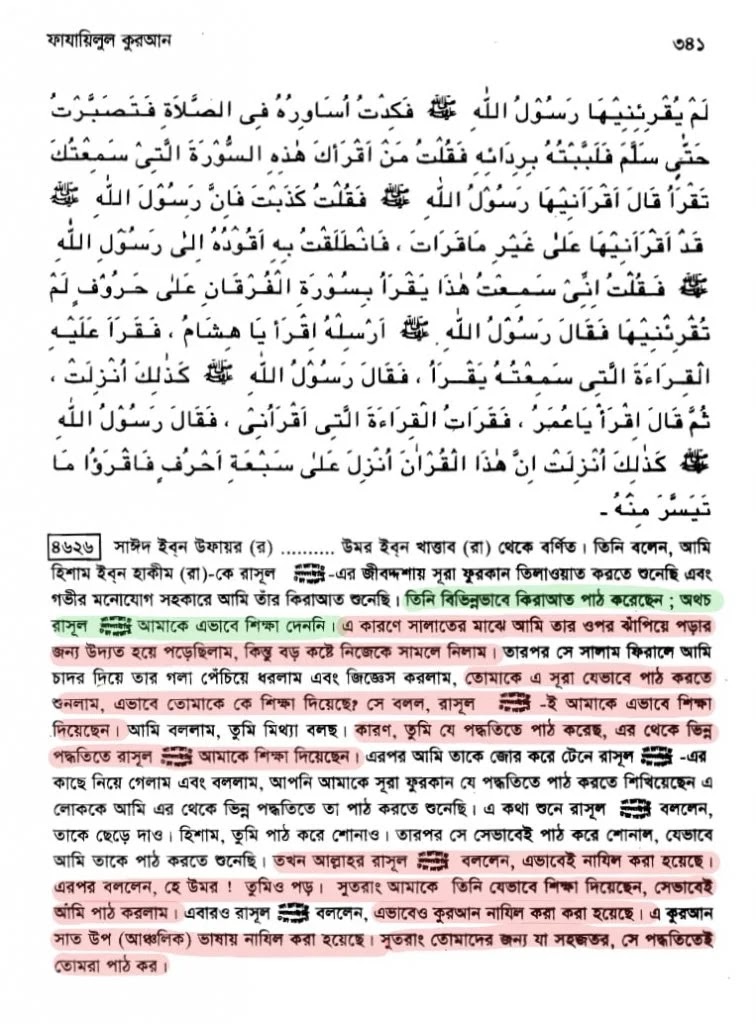 ফাযায়িলুল কুরআন ৩৪১
لَمْ يُقْرِئْنِيْهَا رَسُوْلُ اللّٰهِ ﷺ فَكِدْتُ اُسَاوِرُهُ فِى الصَّلاَةِ فَتَصَبَّرْتُ
حَتّٰى سَلَّمَ فَلَبَّبْتُهُ بِرِدَائِهِ فَقُلْتُ مَنْ اَقْرَأَكَ هٰذِهِ السُّوْرَةَ الَّتِىْ سَمِعْتُكَ
تَقْرَأُ قَالَ اَقْرَاَنِيْهَا رَسُوْلُ اللّٰهِ ﷺ فَقُلْتُ كَذَبْتَ فَاِنَّ رَسُوْلَ اللّٰهِ ﷺ
قَدْ اَقْرَاَنِيْهَا عَلٰى غَيْرِ مَاقَرَاتَ ، فَانْطَلَقْتُ بِهِ اَقُوْدُهُ اِلٰى رَسُوْلِ اللّٰهِ
ﷺ فَقُلْتُ اِنِّىْ سَمِعْتُ هٰذَا يَقْرَأُ بِسُوْرَةِ الْفُرْقَانِ عَلٰى حُرُوْفٍ لَمْ
تُقْرِئْنِيْهَا فَقَالَ رَسُوْلُ اللّٰهِ ﷺ اَرْسِلْهُ اِقْرَأْ يَا هِشَامُ ، فَقَرَاَ عَلَيْهِ
الْقِرَاءَةَ الَّتِى سَمِعْتُهُ يَقْرَأُ ، فَقَالَ رَسُوْلُ اللّٰهِ ﷺ كَذٰلِكَ اُنْزِلَتْ ،
ثُمَّ قَالَ اِقْرَأْ يَاعُمَرُ ، فَقَرَاتُ الْقِرَاءَةَ الَّتِى اَقْرَاَنِىْ ، فَقَالَ رَسُوْلُ اللّٰهِ
ﷺ كَذٰلِكَ اُنْزِلَتْ اِنَّ هٰذَا الْقُرْاٰنَ اُنْزِلَ عَلٰى سَبْعَةِ اَحْرُفٍ فَاقْرَؤُا مَا
تَيَسَّرَ مِنْهُ -
৪৬২৬ সাঈদ ইব্‌ন উফায়র (র) .......... উমর ইব্‌ন খাত্তাব (রা) থেকে বর্ণিত। তিনি বলেন, আমি
হিশাম ইব্‌ন হাকীম (রা)-কে রাসূল ﷺ -এর জীবদ্দশায় সূরা ফুরকান তিলাওয়াত করতে শুনেছি এবং
গভীর মনোযোগ সহকারে আমি তাঁর কিরাআত শুনেছি। তিনি বিভিন্নভাবে কিরাআত পাঠ করেছেন ; অথচ
রাসূল ﷺ আমাকে এভাবে শিক্ষা দেননি। এ কারণে সালাতের মাঝে আমি তার ওপর ঝাঁপিয়ে পড়ার
জন্য উদ্যত হয়ে পড়েছিলাম, কিন্তু বড় কষ্টে নিজেকে সামলে নিলাম। তারপর সে সালাম ফিরালে আমি
চাদর দিয়ে তার গলা পেঁচিয়ে ধরলাম এবং জিজ্ঞেস করলাম, তোমাকে এ সূরা যেভাবে পাঠ করতে
শুনলাম, এভাবে তোমাকে কে শিক্ষা দিয়েছে? সে বলল, রাসূল ﷺ -ই আমাকে এভাবে শিক্ষা
দিয়েছেন। আমি বললাম, তুমি মিথ্যা বলছ। কারণ, তুমি যে পদ্ধতিতে পাঠ করেছ, এর থেকে ভিন্ন
পদ্ধতিতে রাসূল ﷺ আমাকে শিক্ষা দিয়েছেন। এরপর আমি তাকে জোর করে টেনে রাসূল ﷺ -এর
কাছে নিয়ে গেলাম এবং বললাম, আপনি আমাকে সূরা ফুরকান যে পদ্ধতিতে পাঠ করতে শিখিয়েছেন এ
লোককে আমি এর থেকে ভিন্ন পদ্ধতিতে তা পাঠ করতে শুনেছি। এ কথা শুনে রাসূল ﷺ বললেন,
তাকে ছেড়ে দাও। হিশাম, তুমি পাঠ করে শোনাও। তারপর সে সেভাবেই পাঠ করে শোনাল, যেভাবে
আমি তাকে পাঠ করতে শুনেছি। তখন আল্লাহর রাসূল ﷺ বললেন, এভাবেই নাযিল করা হয়েছে।
এরপর বললেন, হে উমর ! তুমিও পড়। সুতরাং আমাকে তিনি যেভাবে শিক্ষা দিয়েছেন, সেভাবেই
আমি পাঠ করলাম। এবারও রাসূল ﷺ বললেন, এভাবেও কুরআন নাযিল করা করা হয়েছে। এ কুরআন
সাত উপ (আঞ্চলিক) ভাষায় নাযিল করা হয়েছে। সুতরাং তোমাদের জন্য যা সহজতর, সে পদ্ধতিতেই
তোমরা পাঠ কর।